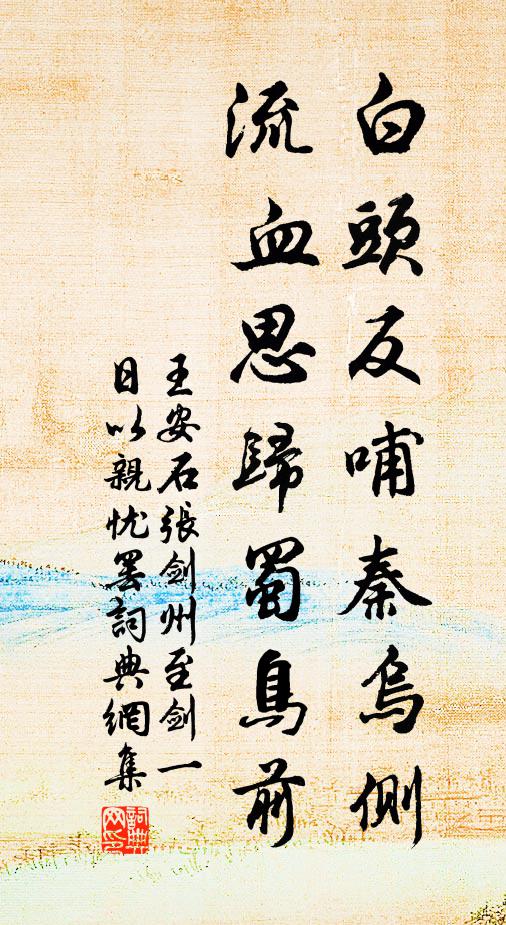 白頭反哺秦烏側
流血思歸蜀鳥前
王安石張劍州至劍一
日以親忧罢詞典網集
詞典网印